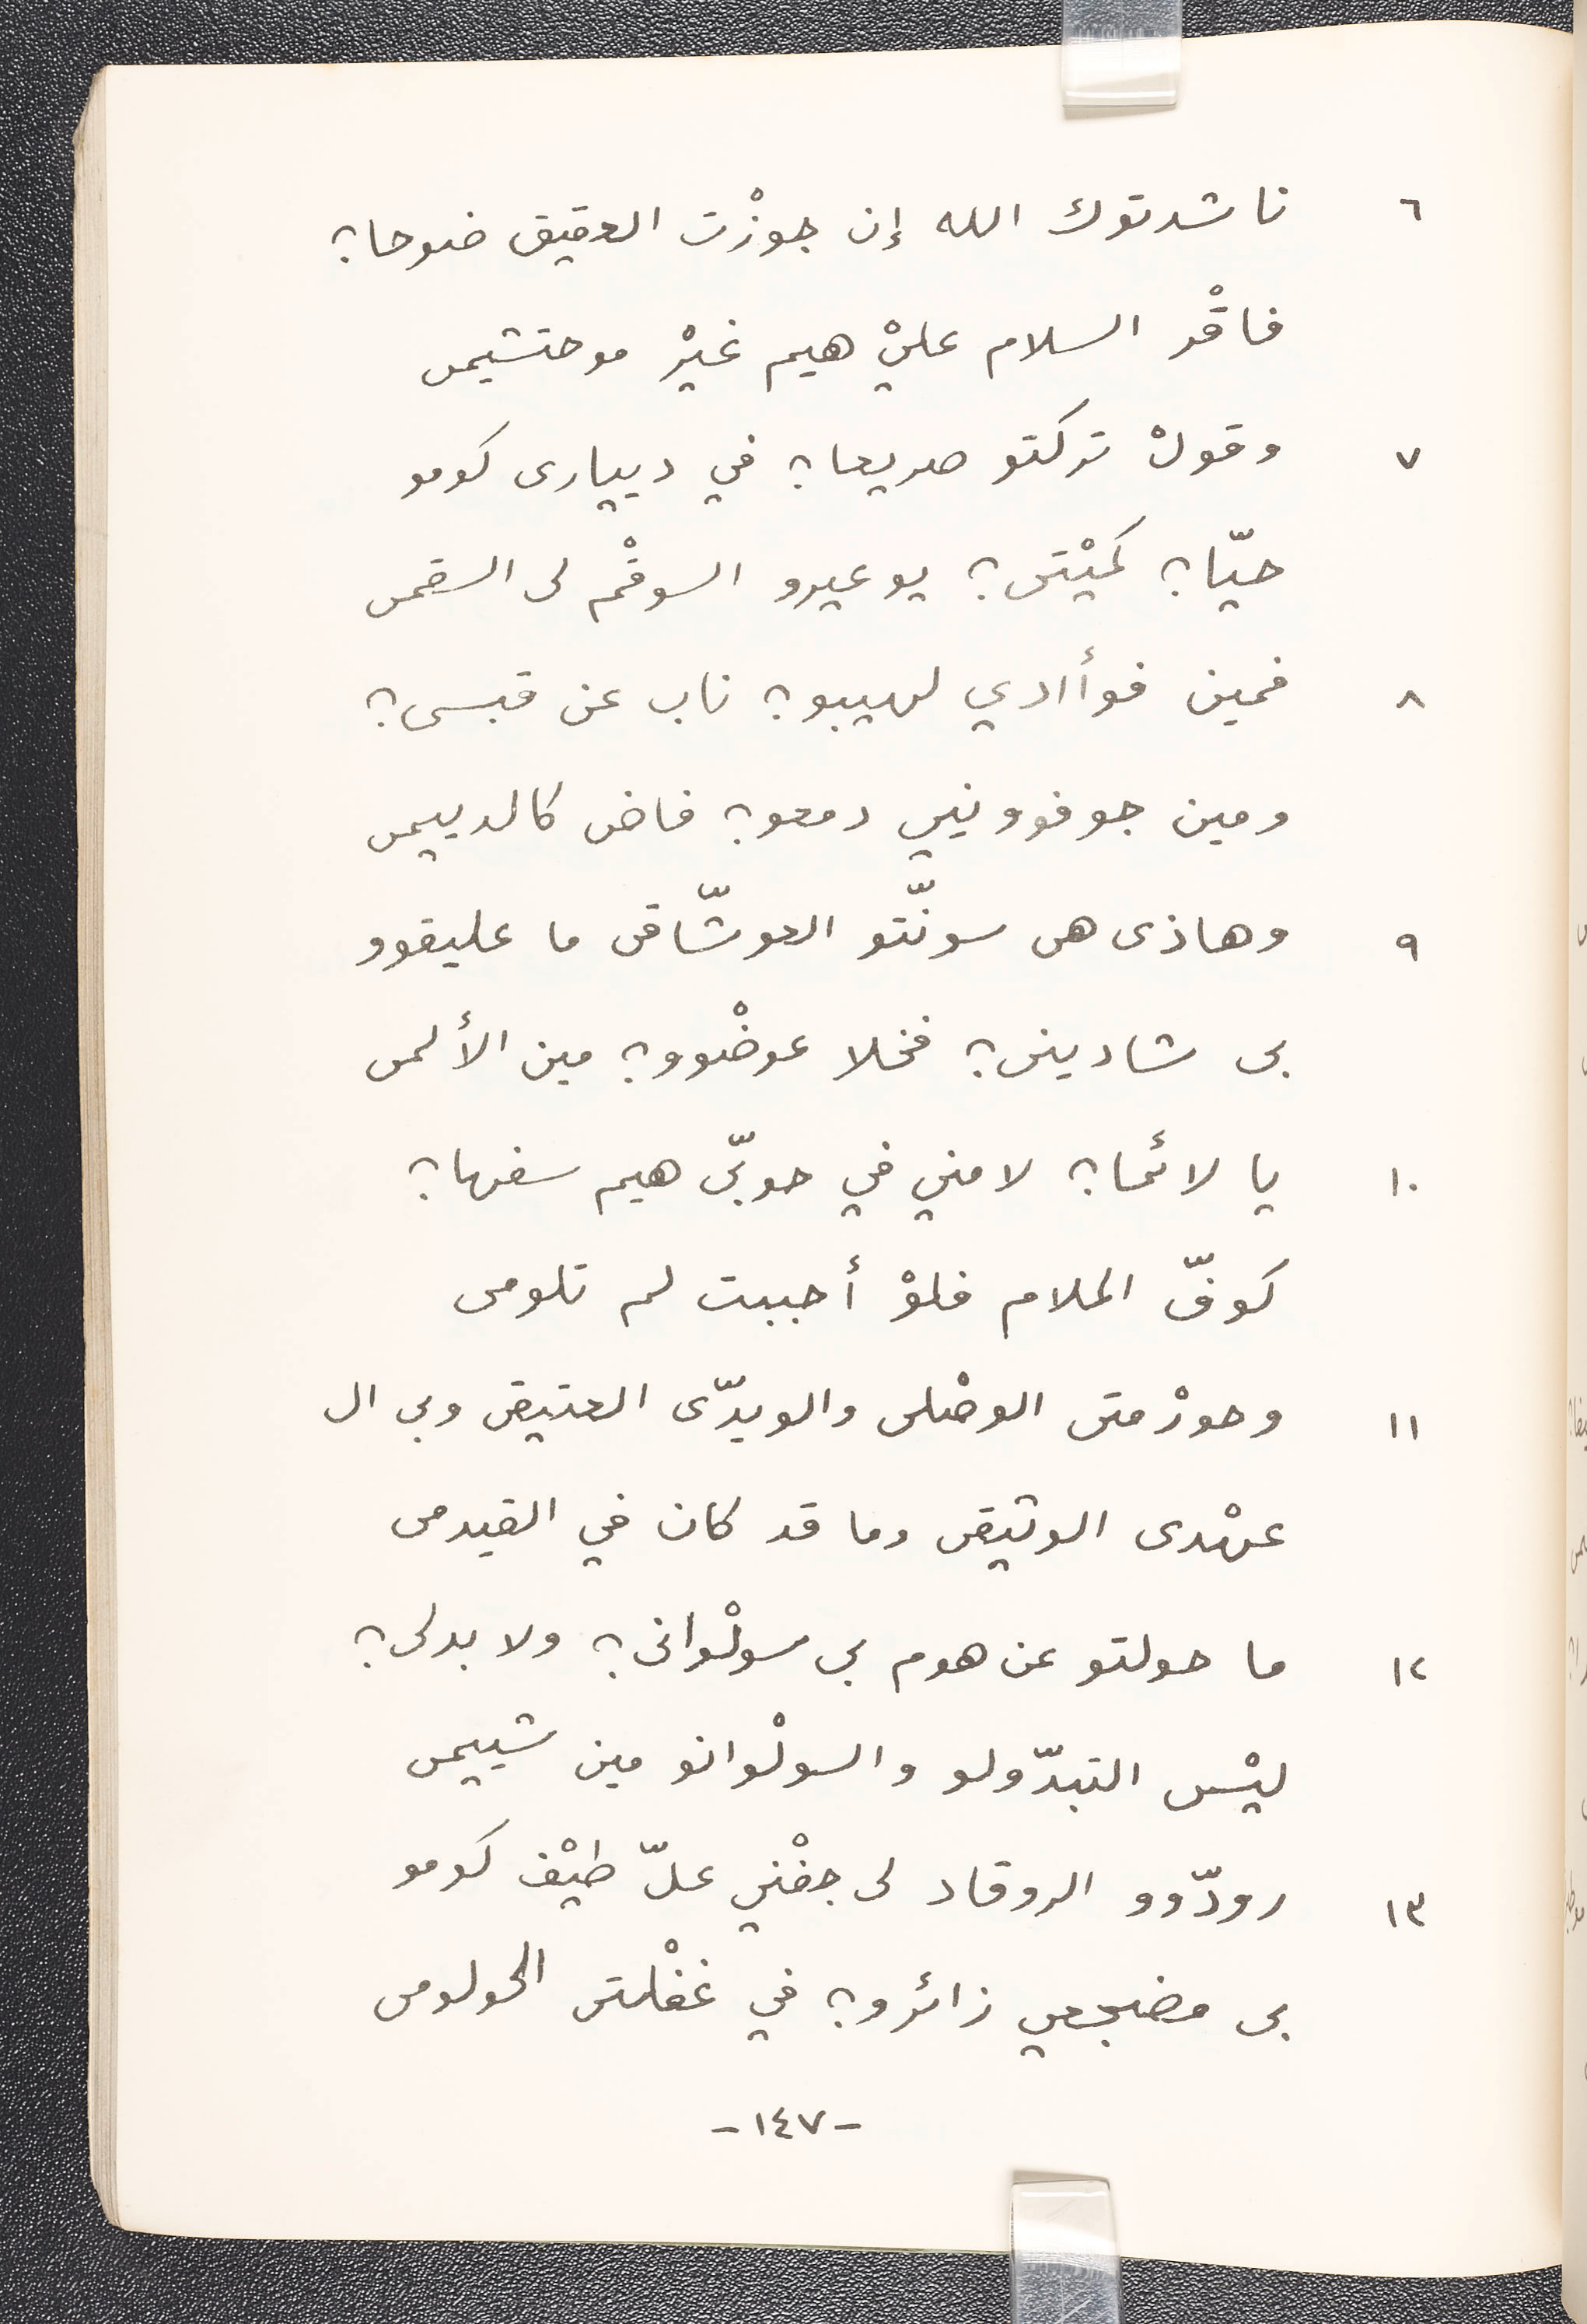 ٦ ناشدتوك الله إن جوزْت العقيق ضوحا؟
فاقْر السلام عليْ هيم غيْر موحتشيمى
٧ وقولْ تركتو صريعا؟ في دييارى كومو
حيّا؟ كميْتى؟ يوعيرو السوقْم لى السقمى
٨ فمين فوأادي لهيبو؟ ناب عن قبسى؟
ومين جوفوونيي دمعو؟ فاض كالدييمى
٩ وهاذى هى سونّتو العوشّاقى ما عليقوو
بى شادينى؟ فخلا عوضْوو؟ مين الألمى
١٠ يا لائما؟ لامني في حوبّى هيم سفها؟
كوفّ الملام فلوْ أحببت لم تلومى
١١ وحورْمتى الوصْلى والويدّى العتيقى وبى ال
عهْدى الوثيقى وما قد كان في القيدمى
١٢ ما حولتو عن هوم بى سولْوانى؟ ولا بدلى؟
ليْس التبدّولو والسولْوانو مين شييمى
١٣ رودّوو الروقاد لى جفْني علّ طيْف كومو
بى مضجعي زائرو؟ في غفْلتى الحولومى
-١٤٧-